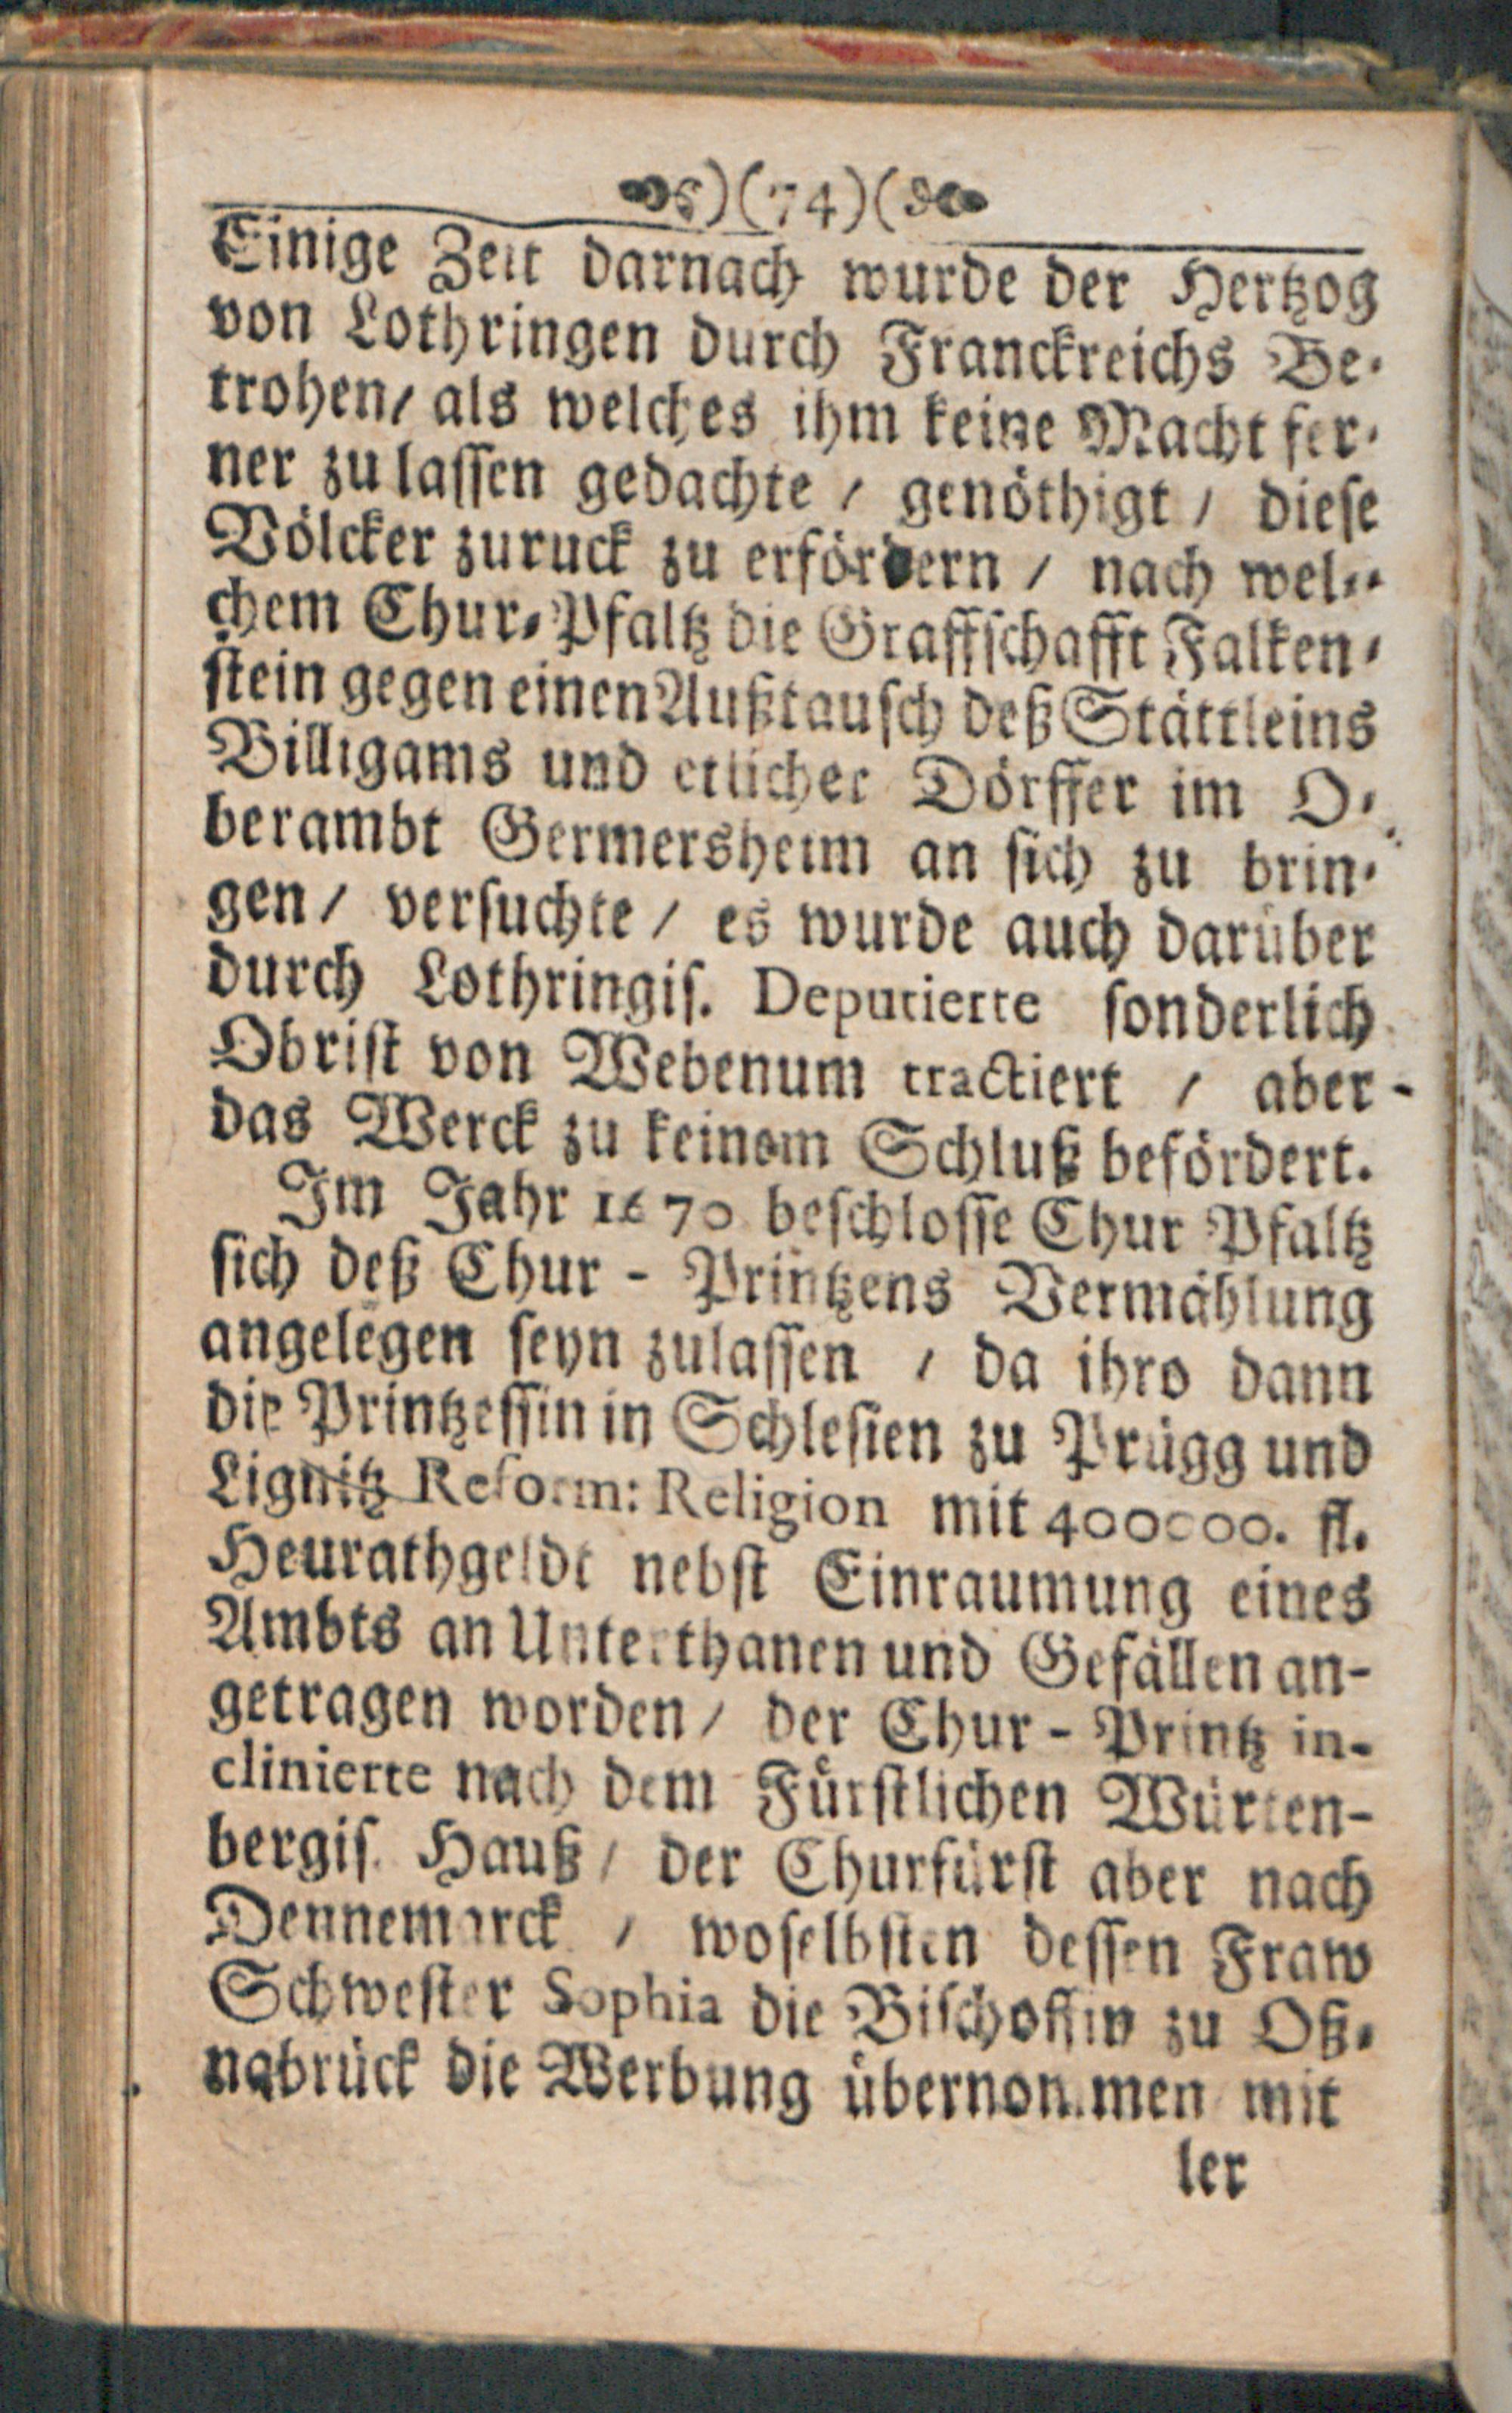 )(74)(
Einige Zeit darnach wurde der Hertzog
von Lothringen durch Franckreichs Be-
trohen/ als welches ihm keine Macht fer-
ner zu lassen gedachte / genöthigt / diese
Völcker zuruck zu erfördern / nach wel-
chem Chur-Pfaltz die Graffschafft Falken-
stein gegen einen Außtausch deß Stättleins
Billigams und etlicher Dörffer im O-
berambt Germersheim an sich zu brin-
gen / versuchte / es wurde auch darüber
durch Lothringis. Deputierte sonderlich
Obrist von Webenum tractiert / aber-
das Werck zu keinem Schluß befördert.
Im Jahr 1670 beschlosse Chur Pfaltz
sich deß Chur - Printzens Vermählung
angelegen seyn zulassen / da ihro dann
die Printzessin in Schlesien zu Prügg und
Lignitz Reform: Religion mit 400000. fl.
Heurathgeldt nebst Einraumung eines
Ambts an Unterthanen und Gefällen an-
getragen worden / der Chur - Printz in-
clinierte nach dem Fürstlichen Würten-
bergis. Hauß / der Churfürst aber nach
Dennemarck / woselbsten dessen Fraw
Schwester Sophia die Bischoffin zu Oß-
nabrück die Werbung übernommen mit
ler